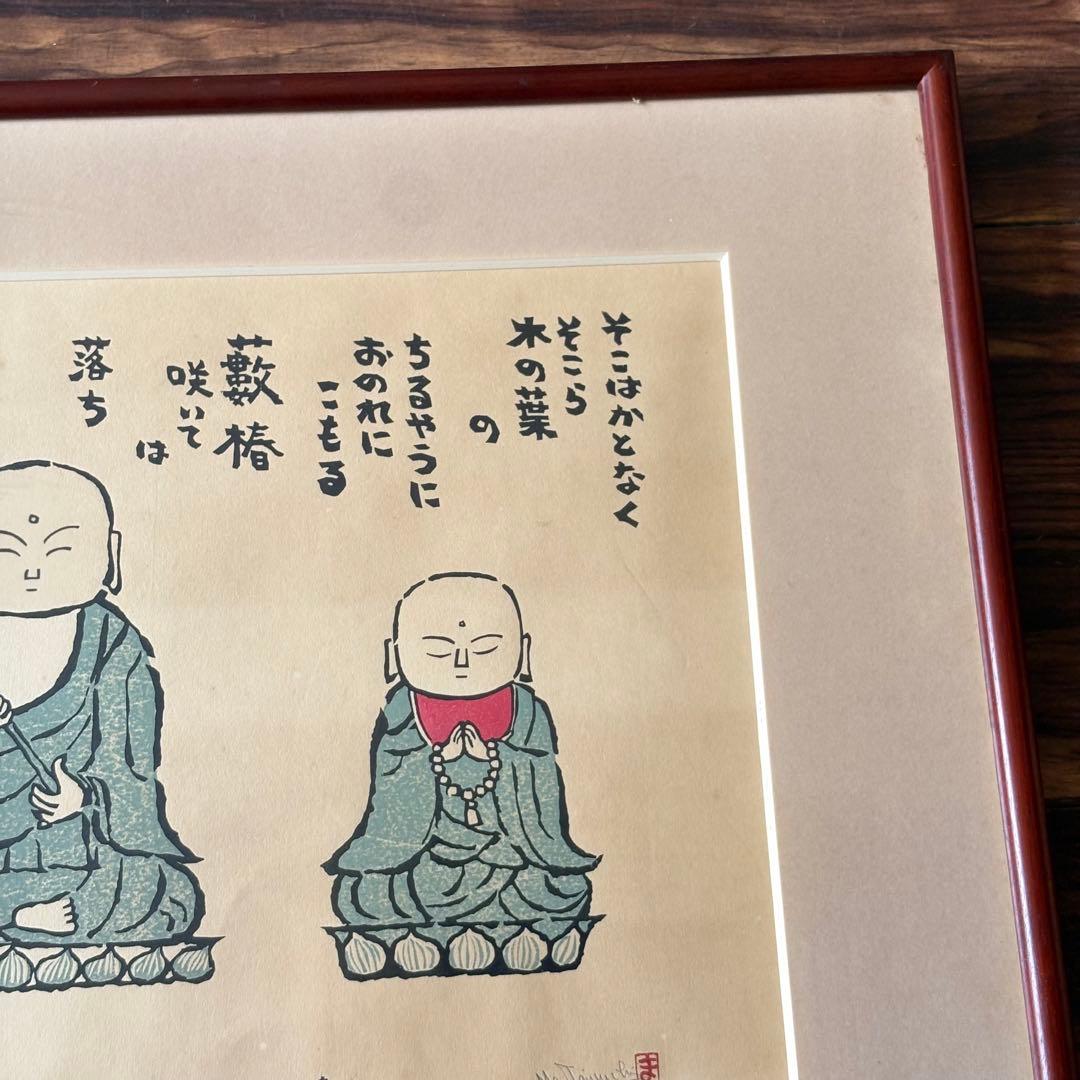 そこはかとなく
そこら
木の葉
の
ちるやうに
おのれに
こもる
藪椿
咲いて
は
落ち